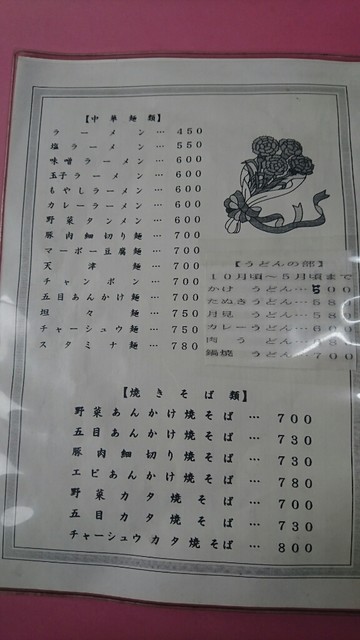 【中華麺類】
ラーメン… 450
塩ラーメン… 550
味噌ラーメン… 600
玉子ラーメン… 600
もやしラーメン… 600
カレーラーメン… 600
野菜タンメン… 600
豚肉細切り麺… 700
マーボー豆腐麺… 700
天津麺… 700
チャンポン… 700
五目あんかけ麺… 700
坦々麺… 750
チャーシュウ麺… 750
スタミナ麺… 780
【うどんの部】
10月頃～5月頃まで
かけうどん…500
たぬきうどん…58
月見うどん…58
カレーうどん…600
肉うどん…58
鍋焼うどん…700
【焼きそば類】
野菜あんかけ焼そば… 700
五目あんかけ焼そば… 730
豚肉細切り焼そば… 730
エビあんかけ焼そば… 780
野菜カタ焼そば… 700
五目カタ焼そば… 730
チャーシュウカタ焼そば… 800